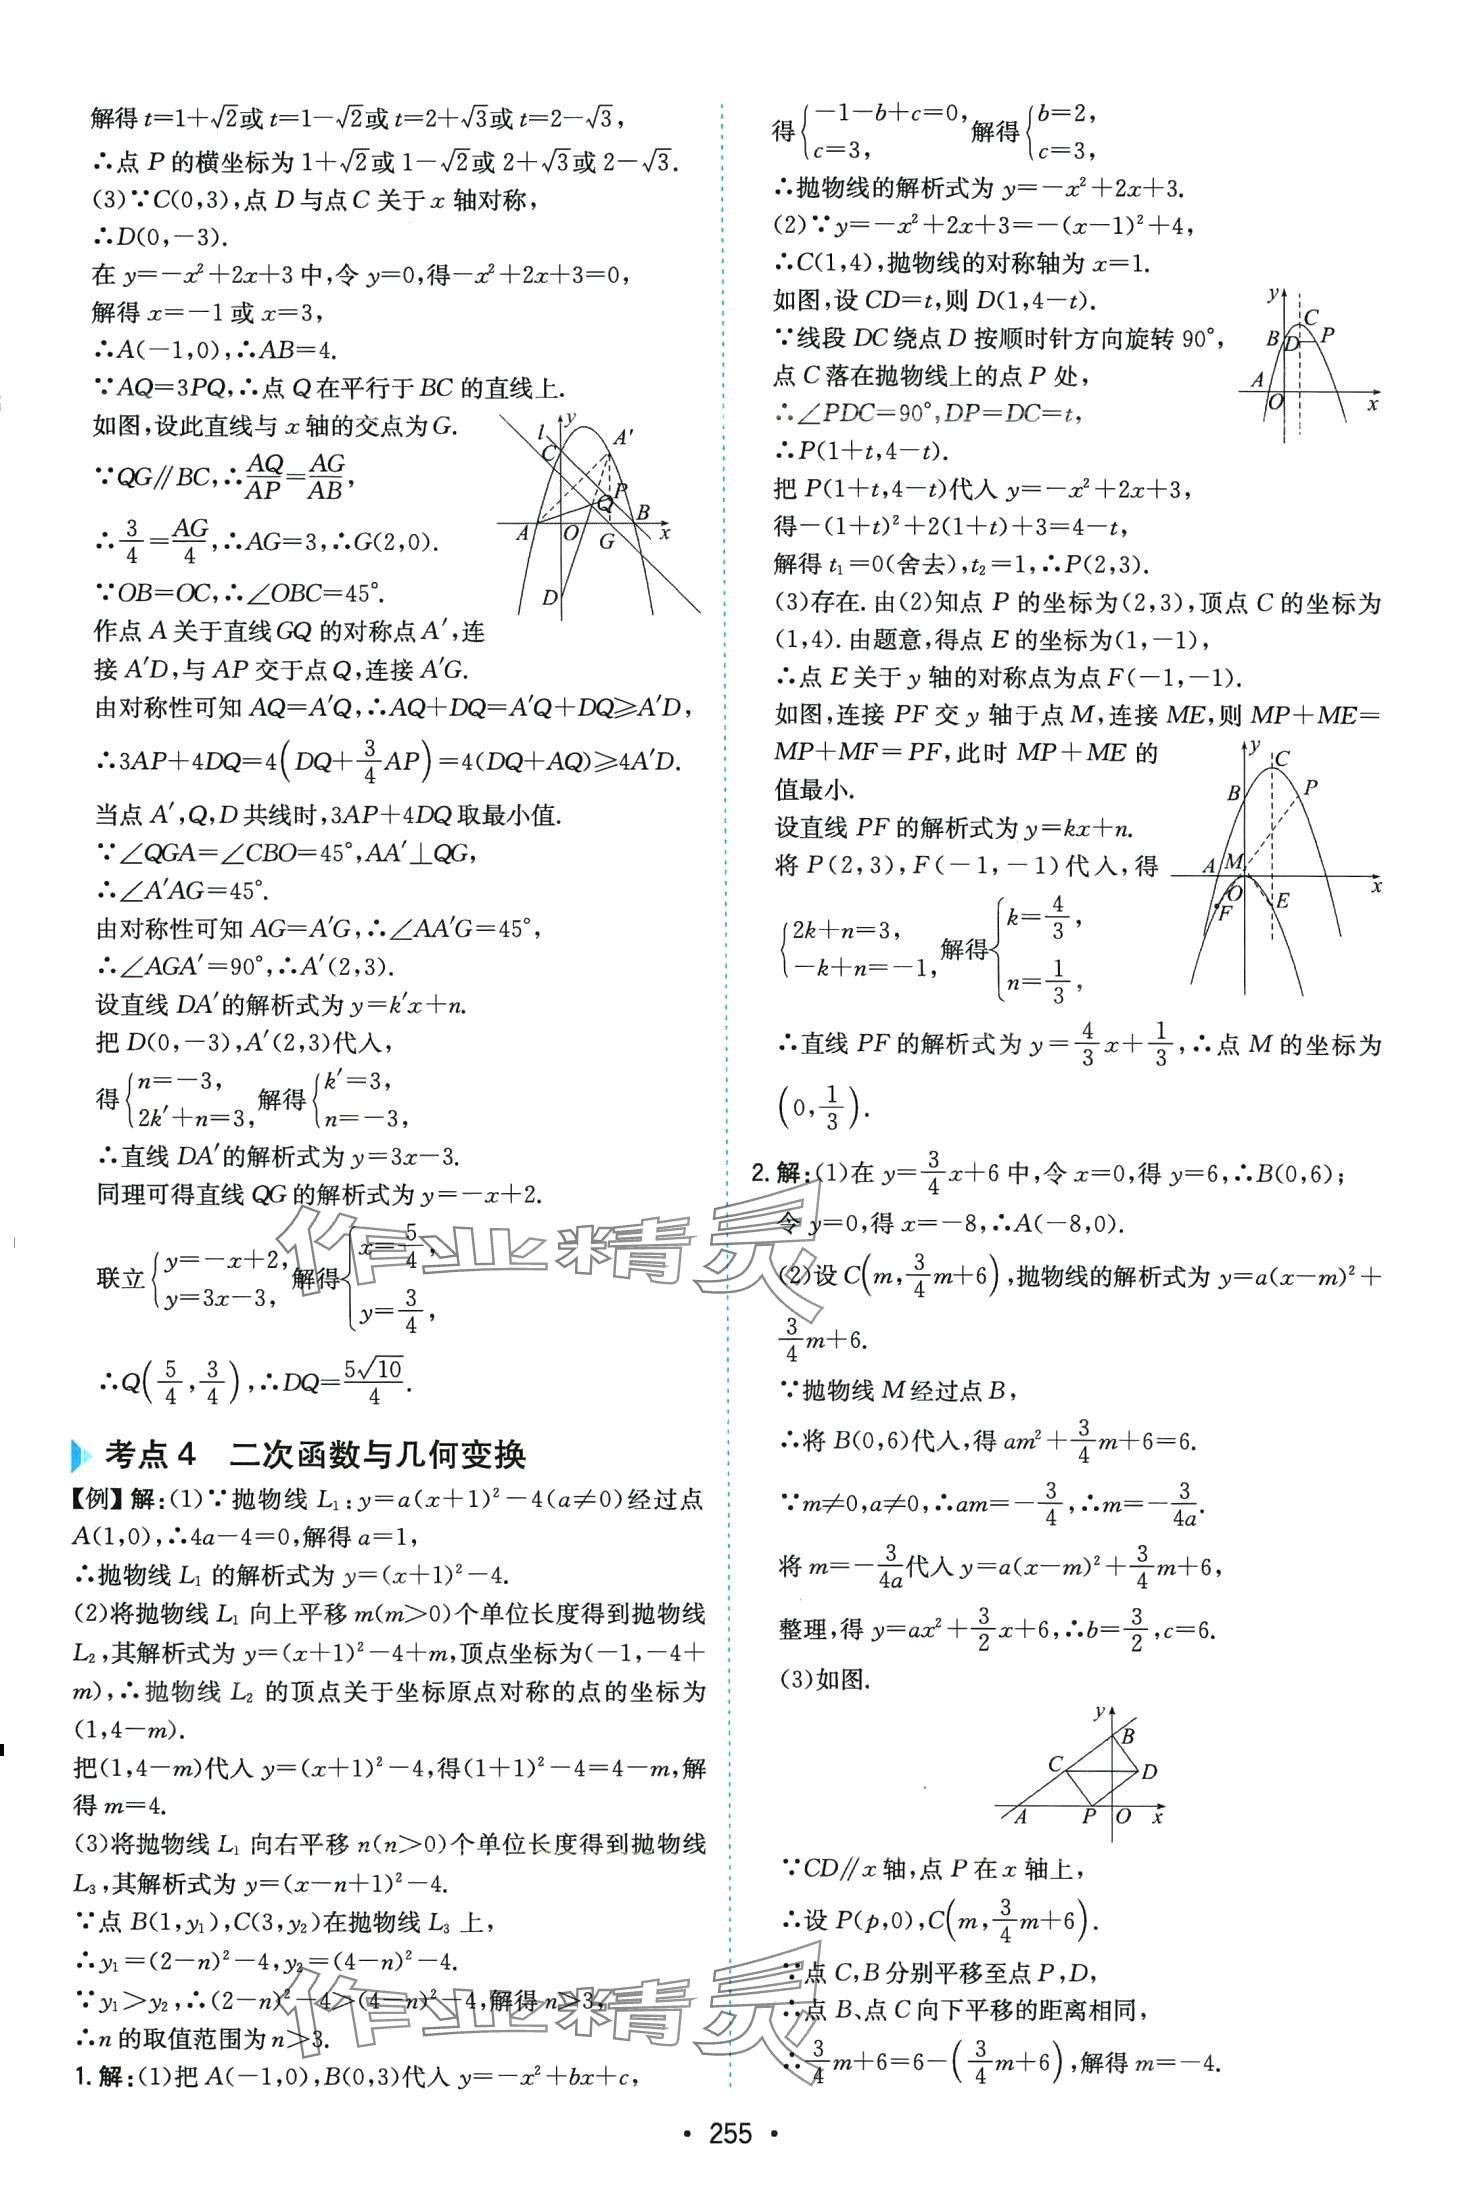 解得 t=1+√2或 t=1-√2或 t=2+√3或 t=2-√3,
∴点 P 的横坐标为 1+√2或 1-√2或 2+√3或 2-√3.
(3)∵C(0,3),点 D 与点 C 关于 x 轴对称,
∴D(0,-3).
在 y=-x²+2x+3 中,令 y=0,得-x²+2x+3=0,
解得 x=-1 或 x=3,
∴A(-1,0),∴AB=4.
∵AQ=3PQ,∴点 Q 在平行于 BC 的直线上.
如图,设此直线与 x 轴的交点为 G.
∵QG∥BC,∴AQ/AP=AG/AB,
∴3/4=AG/4,∴AG=3,∴G(2,0).
∵OB=OC,∴∠OBC=45°.
作点 A 关于直线GQ 的对称点 A′,连
接 A′D,与 AP 交于点 Q,连接 A′G.
l y C A′ P Q A O G B x D
由对称性可知 AQ=A′Q,∴AQ+DQ=A′Q+DQ≥A′D,
∴3AP+4DQ=4(DQ+3/4AP)=4(DQ+AQ)≥4A′D.
当点 A′,Q,D 共线时,3AP+4DQ 取最小值.
∵∠QGA=∠CBO=45°,AA′⊥QG,
∴∠A′AG=45°.
由对称性可知 AG=A′G,∴∠AA′G=45°,
∴∠AGA′=90°,∴A′(2,3).
设直线 DA′的解析式为 y=k′x+n.
把 D(0,-3),A′(2,3)代入,
得{n=-3, 2k′+n=3, 解得{k′=3, n=-3,
∴直线 DA′的解析式为 y=3x-3.
同理可得直线 QG 的解析式为 y=-x+2.
联立{y=-x+2, y=3x-3, 解得{x=5/4, y=3/4,
∴Q(5/4,3/4),∴DQ=5√10/4.
考点 4 二次函数与几何变换
【例】解:(1)∵抛物线 L₁:y=a(x+1)²-4(a≠0)经过点
A(1,0),∴4a-4=0,解得 a=1,
∴抛物线 L₁ 的解析式为 y=(x+1)²-4.
(2)将抛物线 L₁ 向上平移 m(m>0)个单位长度得到抛物线
L₂,其解析式为 y=(x+1)²-4+m,顶点坐标为(-1,-4+
m),∴抛物线 L₂ 的顶点关于坐标原点对称的点的坐标为
(1,4-m).
把(1,4-m)代入 y=(x+1)²-4,得(1+1)²-4=4-m,解
得 m=4.
(3)将抛物线 L₁ 向右平移 n(n>0)个单位长度得到抛物线
L₃,其解析式为 y=(x-n+1)²-4.
∵点 B(1,y₁),C(3,y₂)在抛物线 L₃ 上,
∴y₁=(2-n)²-4,y₂=(4-n)²-4.
∵y₁>y₂,∴(2-n)²-4>(4-n)²-4,解得 n>3,
∴n 的取值范围为 n>3.
1.解:(1)把 A(-1,0),B(0,3)代入 y=-x²+bx+c,
得{-1-b+c=0, c=3, 解得{b=2, c=3,
∴抛物线的解析式为 y=-x²+2x+3.
(2)∵y=-x²+2x+3=-(x-1)²+4,
∴C(1,4),抛物线的对称轴为 x=1.
如图,设 CD=t,则 D(1,4-t).
∵线段 DC 绕点 D 按顺时针方向旋转 90°,
点 C 落在抛物线上的点 P 处,
∴∠PDC=90°,DP=DC=t,
∴P(1+t,4-t).
y C B D P A O x
把 P(1+t,4-t)代入 y=-x²+2x+3,
得-(1+t)²+2(1+t)+3=4-t,
解得 t₁=0(舍去),t₂=1,∴P(2,3).
(3)存在.由(2)知点 P 的坐标为(2,3),顶点 C 的坐标为
(1,4).由题意,得点 E 的坐标为(1,-1),
∴点 E 关于 y 轴的对称点为点 F(-1,-1).
如图,连接 PF 交 y 轴于点 M,连接 ME,则 MP+ME=
MP+MF=PF,此时 MP+ME 的
值最小.
设直线 PF 的解析式为 y=kx+n.
将 P(2,3),F(-1,-1)代入,得
{2k+n=3, -k+n=-1, 解得{k=4/3, n=1/3,
y C B P A M O x F E
∴直线 PF 的解析式为 y=4/3x+1/3,∴点 M 的坐标为
(0,1/3).
2.解:(1)在 y=3/4x+6 中,令 x=0,得 y=6,∴B(0,6);
令 y=0,得 x=-8,∴A(-8,0).
(2)设 C(m,3/4m+6),抛物线的解析式为 y=a(x-m)²+
3/4m+6.
∵抛物线 M 经过点 B,
∴将 B(0,6)代入,得 am²+3/4m+6=6.
∵m≠0,a≠0,∴am=-3/4,∴m=-3/4a.
将 m=-3/4a代入 y=a(x-m)²+3/4m+6,
整理,得 y=ax²+3/2x+6,∴b=3/2,c=6.
(3)如图.
y B C D A P O x
∵CD∥x 轴,点 P 在 x 轴上,
∴设 P(p,0),C(m,3/4m+6).
∵点 C,B 分别平移至点 P,D,
∴点 B、点 C 向下平移的距离相同,
∴3/4m+6=6-(3/4m+6),解得 m=-4.
作业精灵
作业精灵
• 255 •